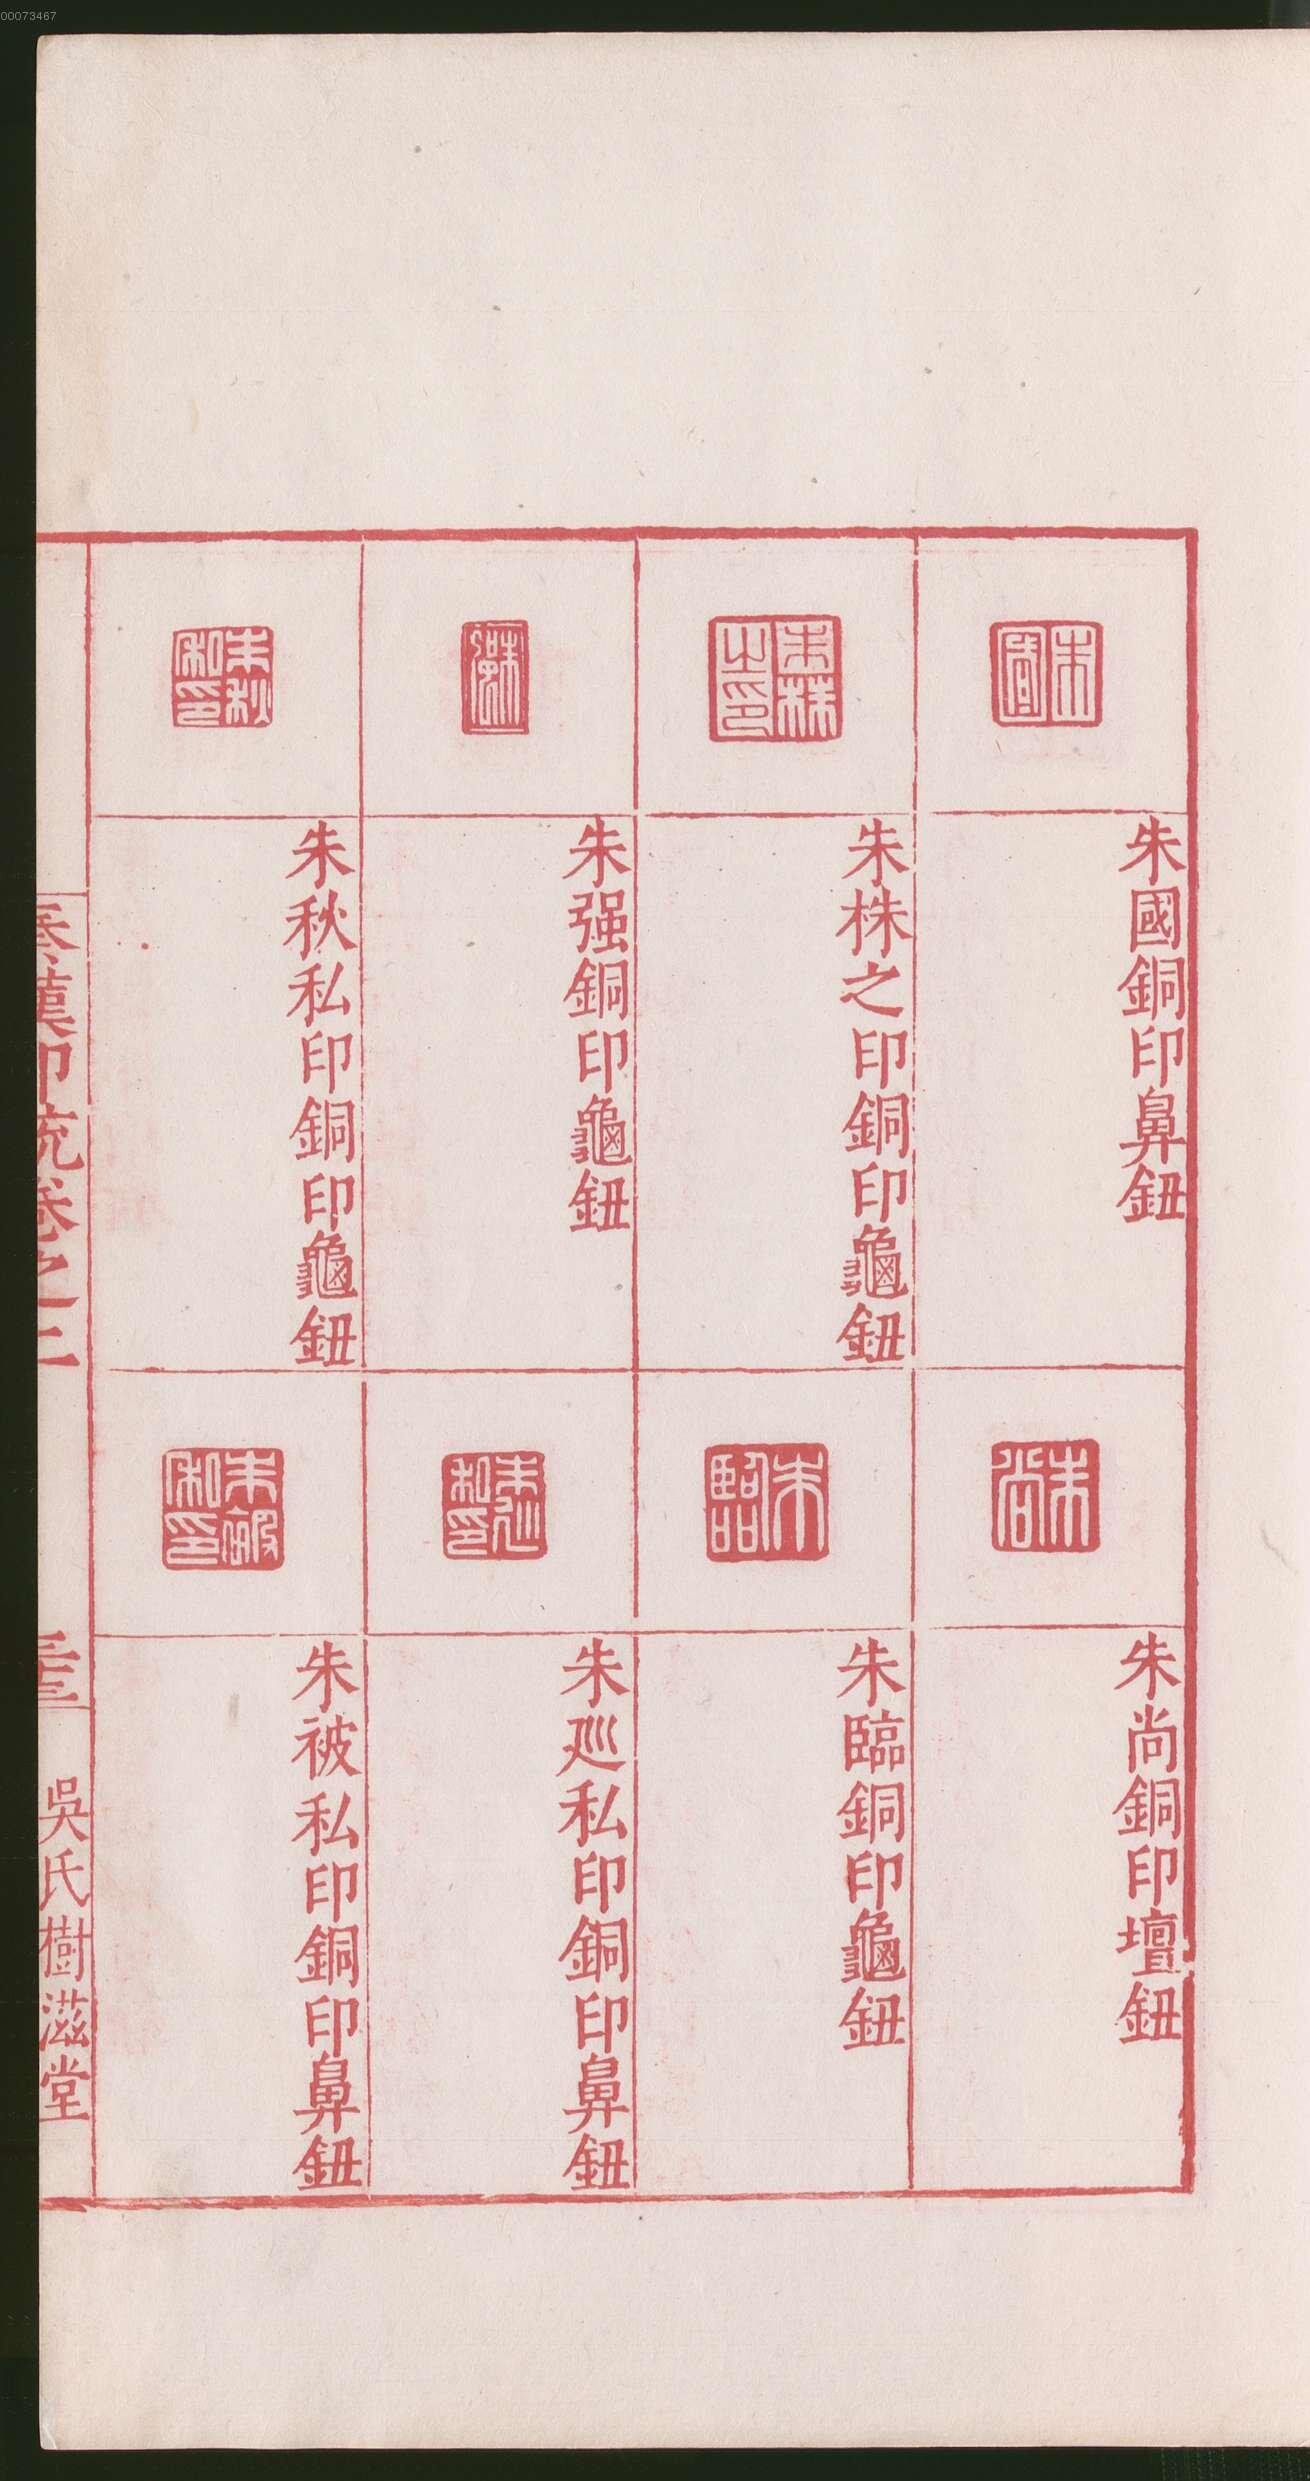 00073467
朱國銅印鼻鈕
朱株之印銅印龜鈕
朱强銅印龜鈕
朱秋私印銅印龜鈕
朱尚銅印壇鈕
朱臨銅印龜鈕
朱廵私印銅印鼻鈕
朱被私印銅印鼻鈕
秦漢印統卷之二
吳氏樹滋堂